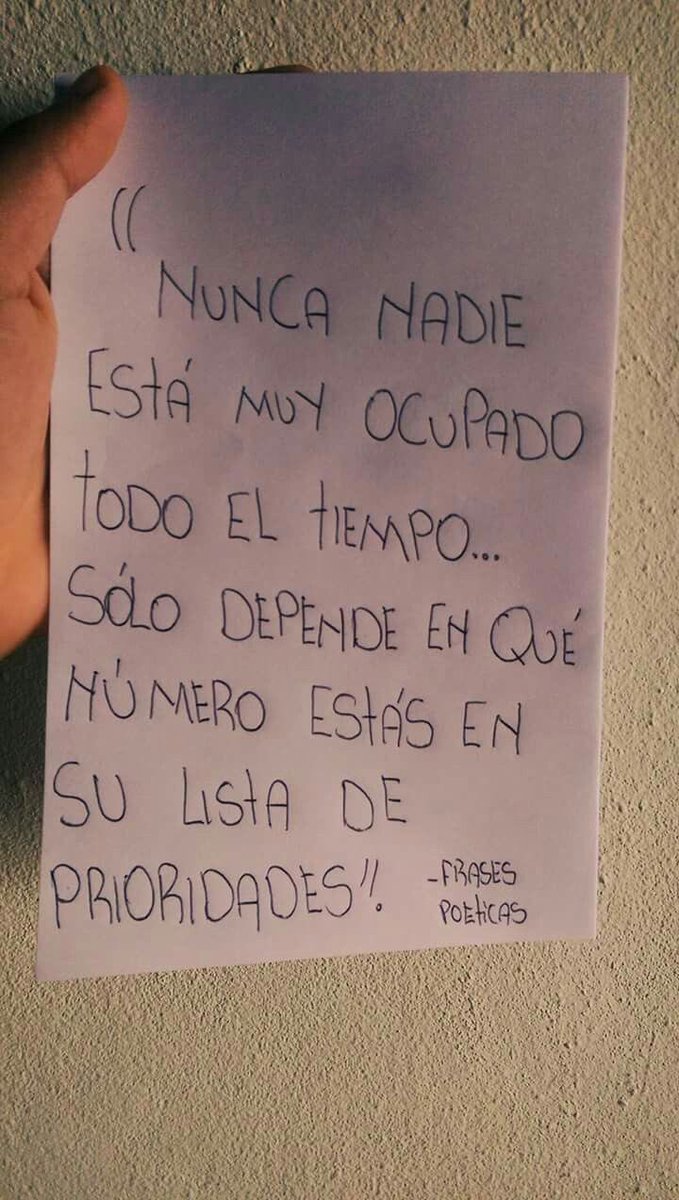 "
NUNCA NADIE
EStÁ MUY OCUPADO
tODO EL tIEMPO...
SÓLO DEPENDE EN QUÉ
NÚMERO EStÁS EN
SU LIStA DE
PRIORIDADES".
-FRASES
POEtiCAS